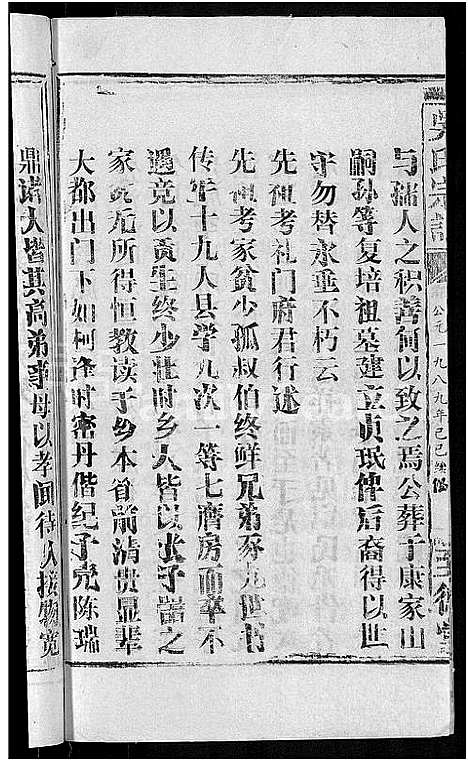 吴氏宗谱
公元一九八九年己巳续修
与孺人之积善何以致之焉公葬于康家山
嗣孙等复培祖墓建立贞珉俾后裔得以世
守勿替永垂不朽云
先祖考礼门府君行述
先祖考家贫少孤叔伯终鲜兄弟琢九世书
传年十九入县学九次一等七膺房而卒不
遇竟以贡生终少壮时乡人皆以才子器之
家贫无所得恒教读于乡本省前清贵显辈
大都出门下如柯逢时密丹偕纪子尧陈瑞
鼎诸人皆其高弟事母以孝闻待人接物宽